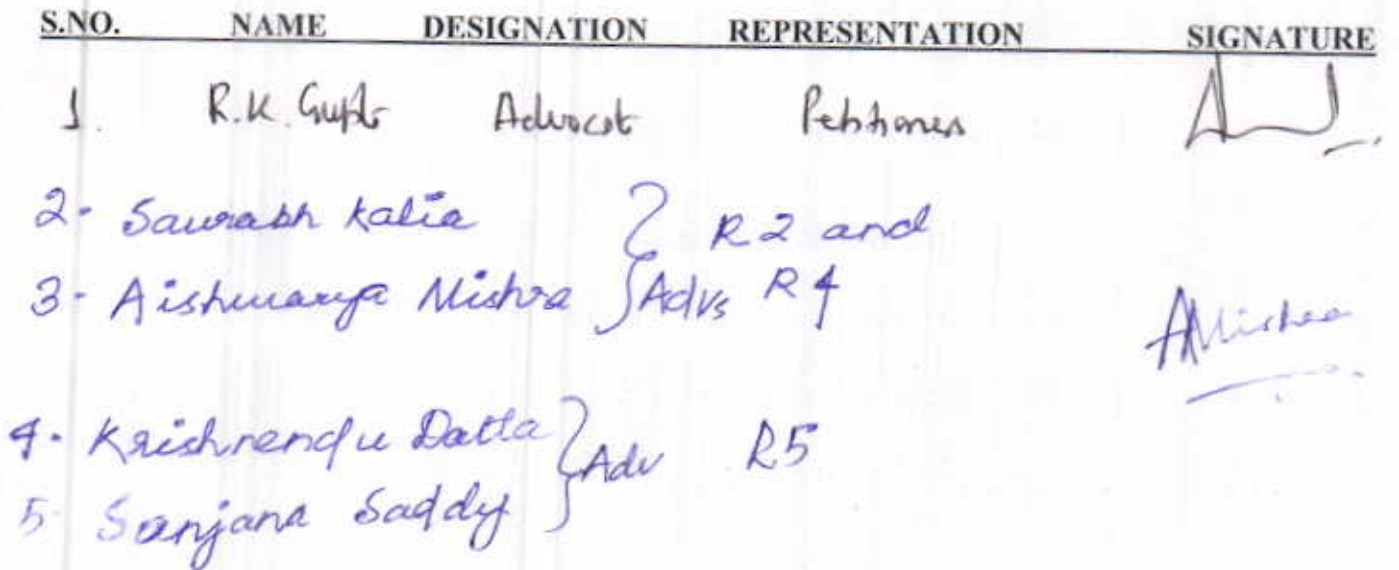 S.NO. NAME DESIGNATION REPRESENTATION SIGNATURE
1. R.K. Gupta Advocate Petitioner
2. Saurabh Kalia } R2 and
3. Aishwarya Mishra } Advs R4
AMishra
4. Krishnendu Datta } Adv R5
5. Sanjana Saddy